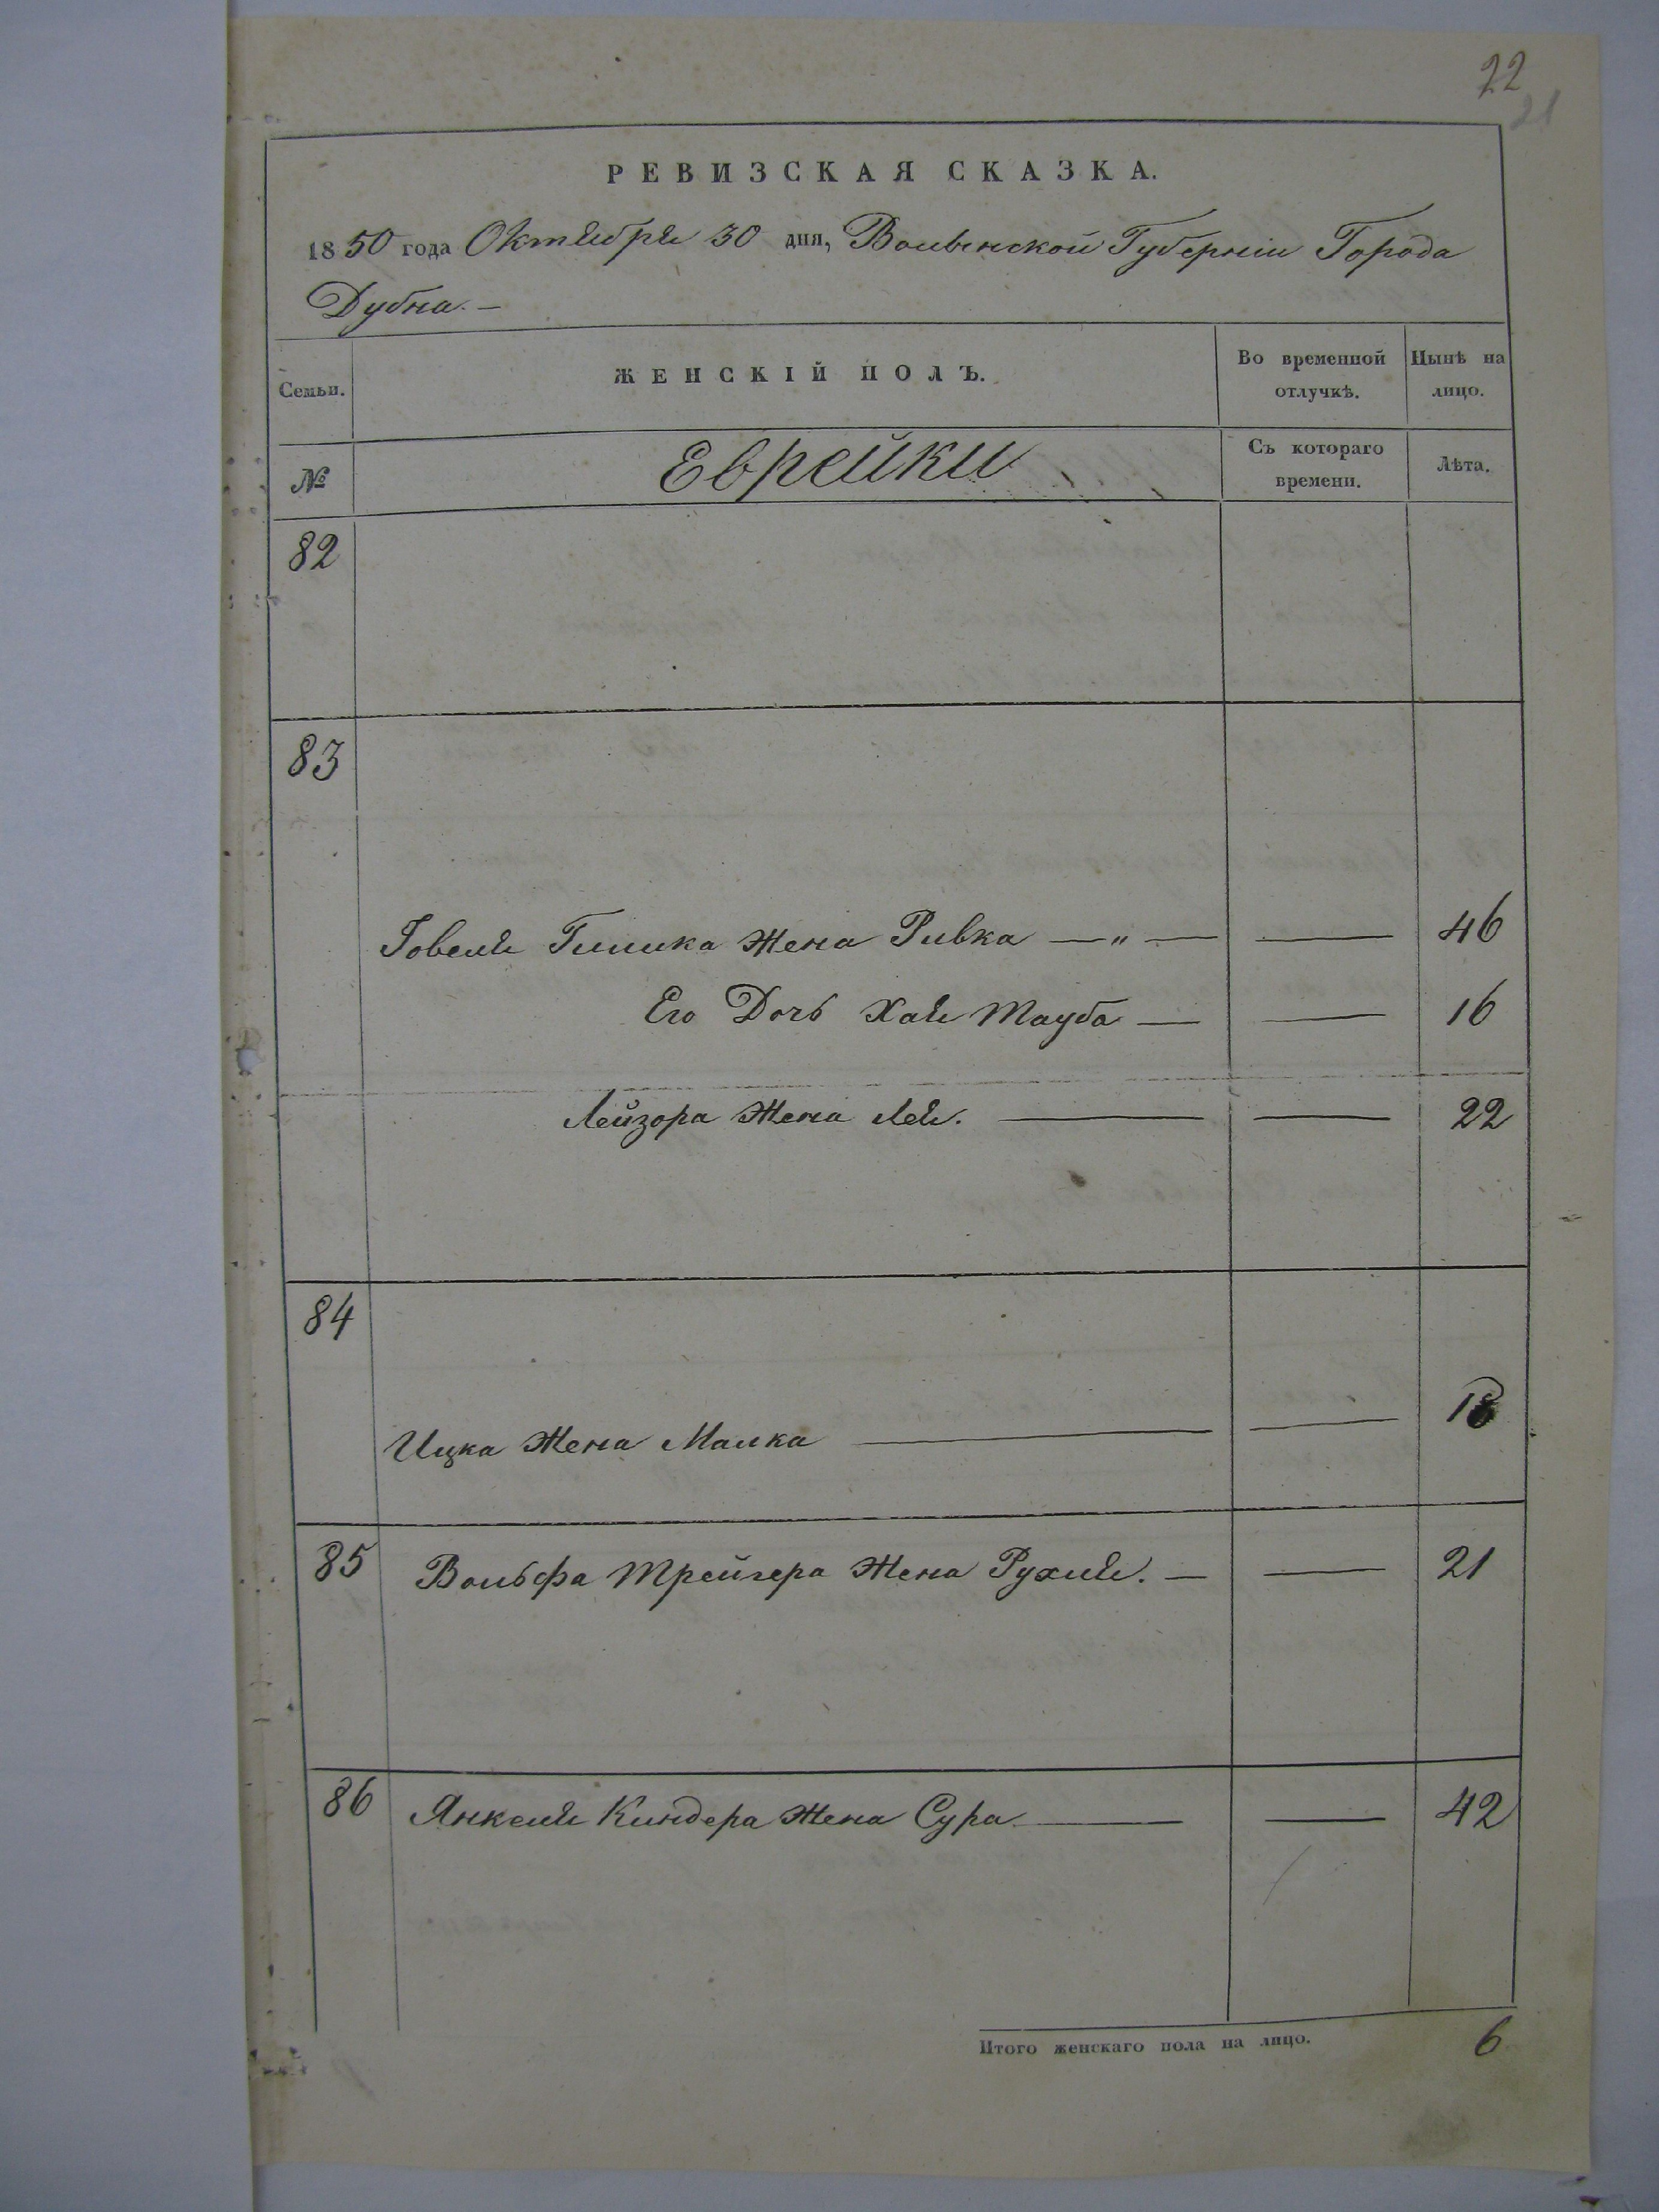 22
21
РЕВИЗСКАЯ СКАЗКА.
1850 года Октября 30 дня, Волынской Губерніи Города
Дубна. —
Семьи.
ЖЕНСКІЙ ПОЛЪ.
Во временной
отлучкѣ.
Нынѣ на
лицо.
№
Еврейки
Съ котораго
времени.
Лѣта.
82
83
Іовеля Гилика Жена Ривка — „ — — 46
Его Дочь Хая Тауба — — 16
Лейзора Жена Лея. — — 22
84
Ицка Жена Малка — — 18
85 Вольфа Трейгера Жена Рухля. — — 21
86 Янкеля Киндера Жена Сура — — 42
Итого женскаго пола на лицо. 6